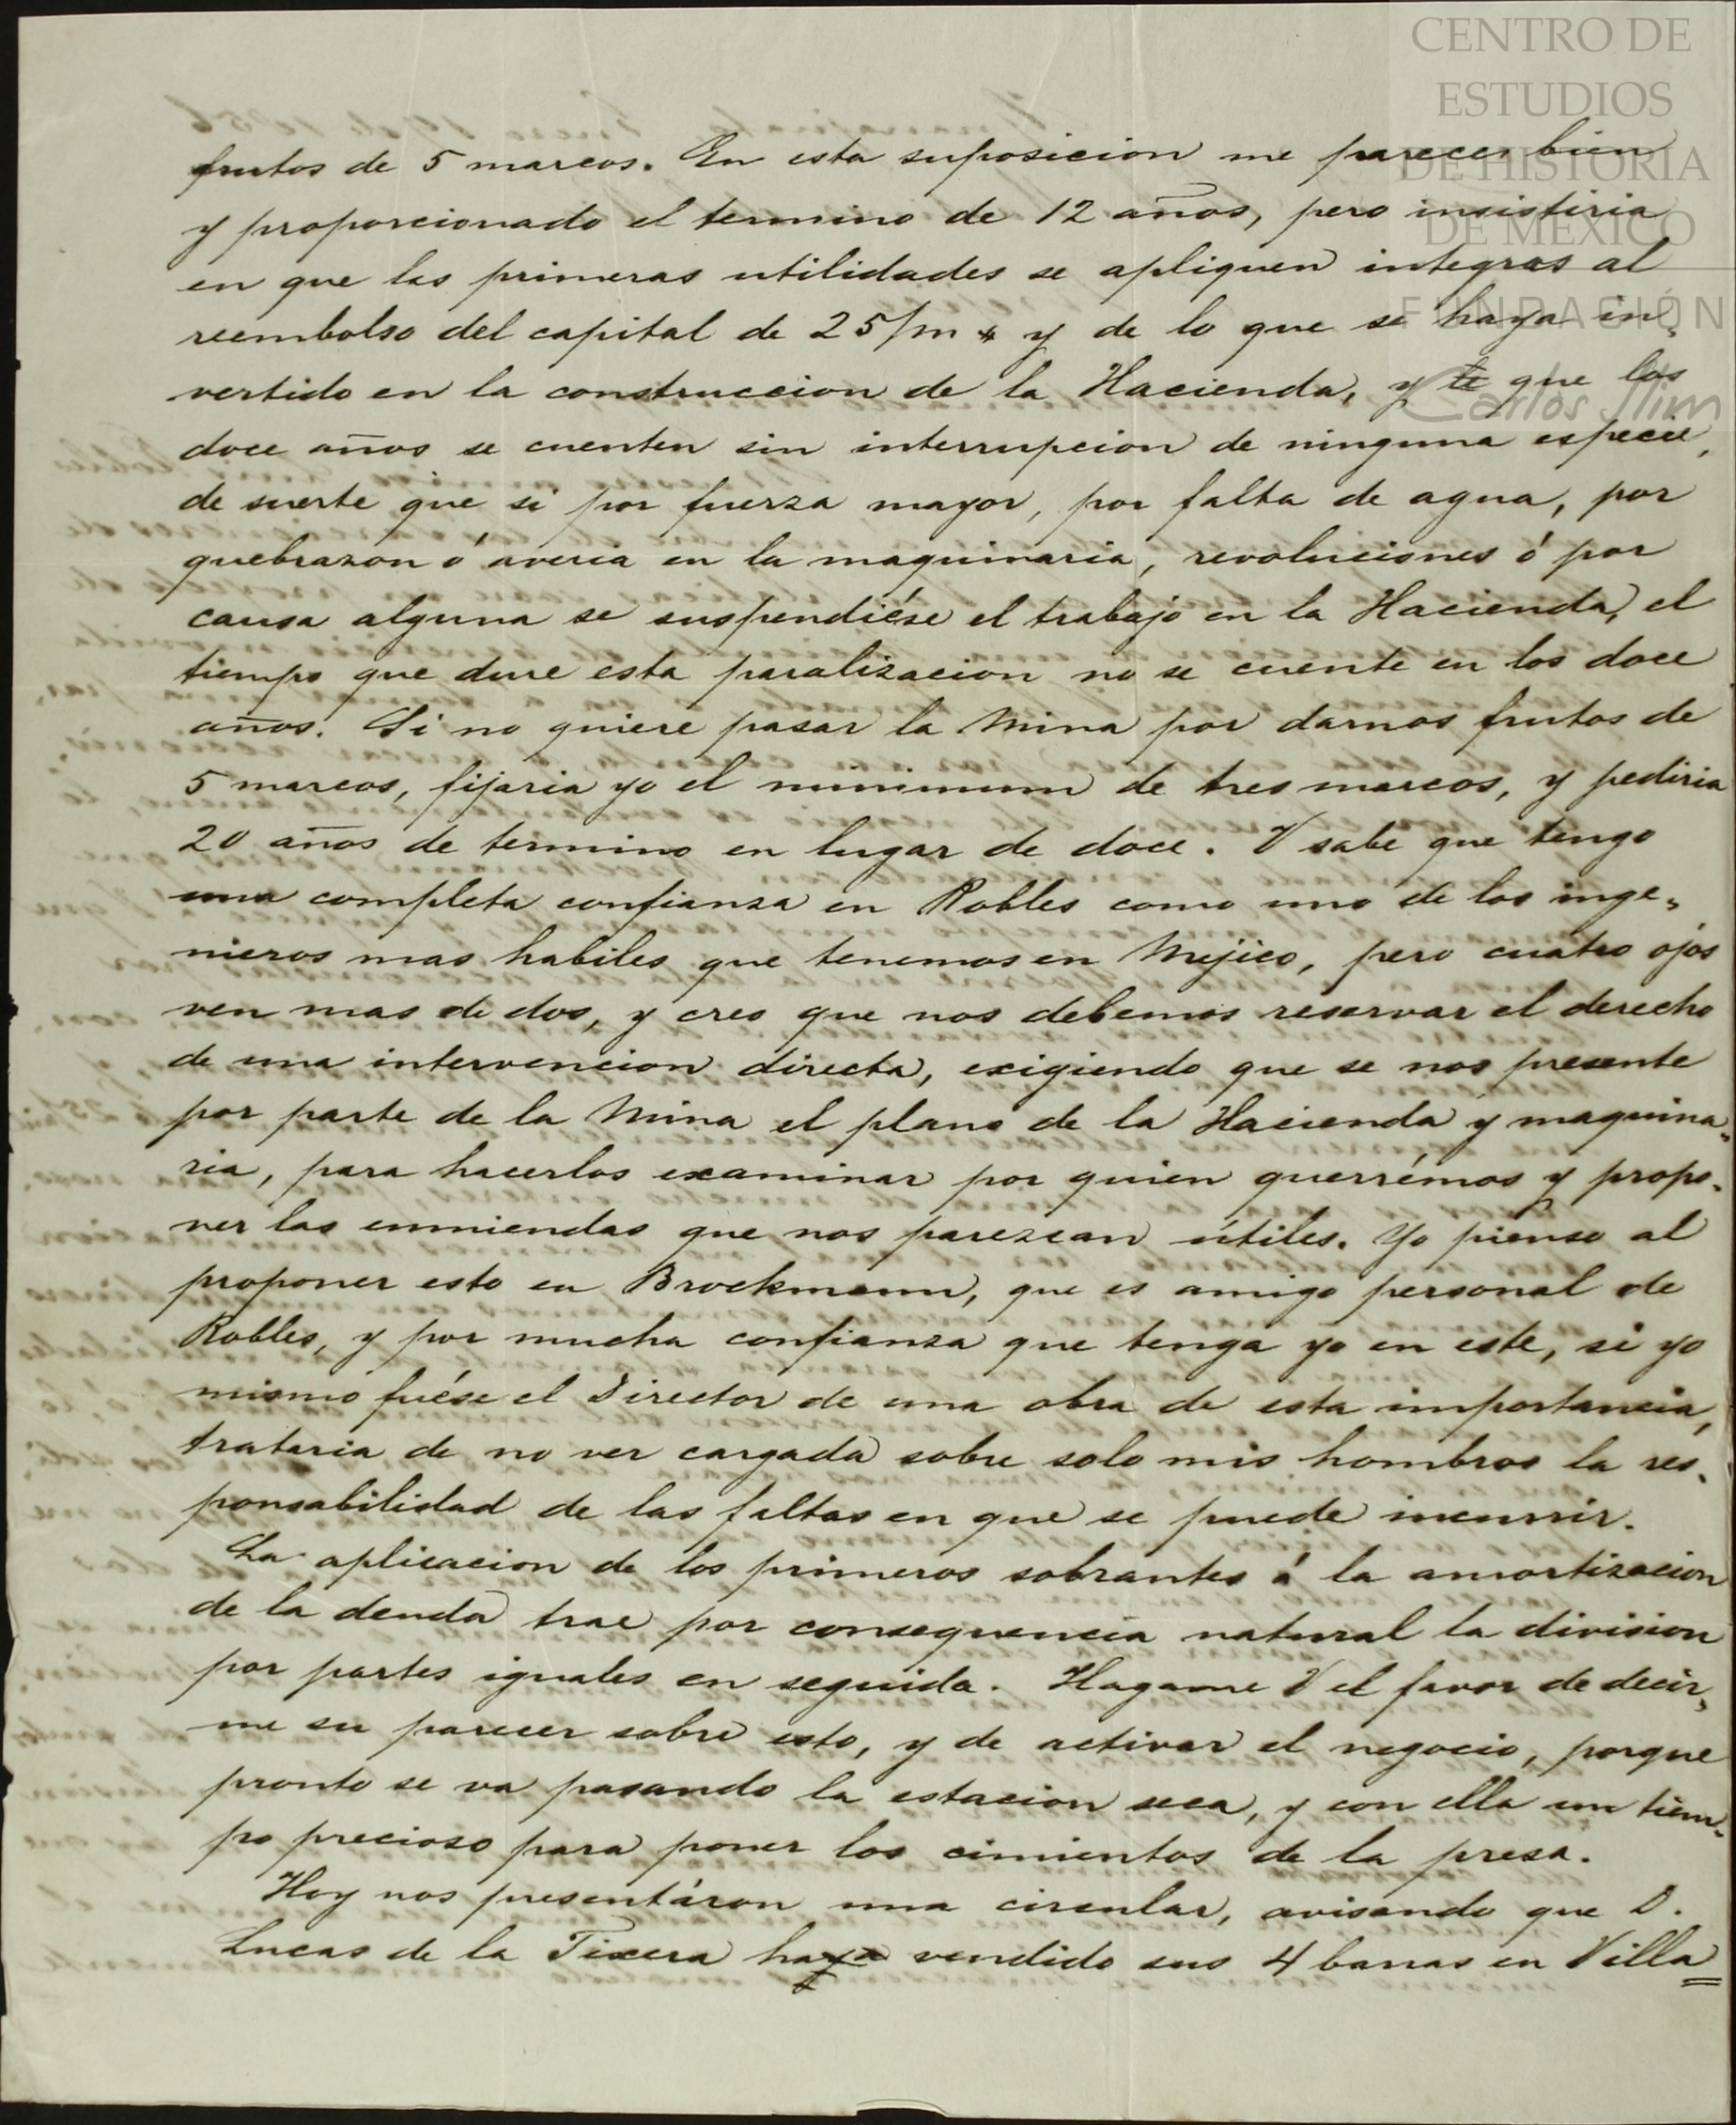 CENTRO DE
ESTUDIOS
DE HISTORIA
DE MÉXICO
FUNDACIÓN
Carlos Slim
frutos de 5 marcos. En esta suposicion me parecer bien
y proporcionado el termino de 12 años, pero insistiria
en que las primeras utilidades se apliquen integras al
reembolso del capital de 25/m $ y de lo que se haya in-
vertido en la construccion de la Hacienda, y que los
doce años se cuenten sin interrupcion de ninguna especie,
de suerte que si por fuerza mayor, por falta de agua, por
quebrazon ó averia en la maquinaria, revoluciones ó por
causa alguna se suspendiése el trabajo en la Hacienda, el
tiempo que dure esta paralizacion no se cuente en los doce
años. Si no quiere pasar la Mina por darnos frutos de
5 marcos, fijaria yo el minimum de tres marcos, y pediria
20 años de termino en lugar de doce. V sabe que tengo
una completa confianza en Robles como uno de los inge-
nieros mas habiles que tenemos en Mejico, pero cuatro ojos
ven mas de dos, y creo que nos debemos reservar el derecho
de una intervencion directa, exigiendo que se nos presente
por parte de la Mina el plano de la Hacienda y maquina-
ria, para hacerlos examinar por quien querrémos y propo-
ner las enmiendas que nos parezcan útiles. Yo pienso al
proponer esto en Brockmann, que es amigo personal de
Robles, y por mucha confianza que tenga yo en este, si yo
mismo fuése el Director de una obra de esta importancia,
trataria de no ver cargada sobre solo mis hombros la res-
ponsabilidad de las faltas en que se puede incurrir.
La aplicacion de los primeros sobrantes á la amortizacion
de la deuda trae por consequencia natural la division
por partes iguales en seguida. Hagame V el favor de decir-
me su parecer sobre esto, y de activar el negocio, porque
pronto se va pasando la estacion seca, y con ella un tiem-
po precioso para poner los cimientos de la presa.
Hoy nos presentáron una circular, avisando que D.
Lucas de la Tixera haya vendido sus 4 barras en Villa=